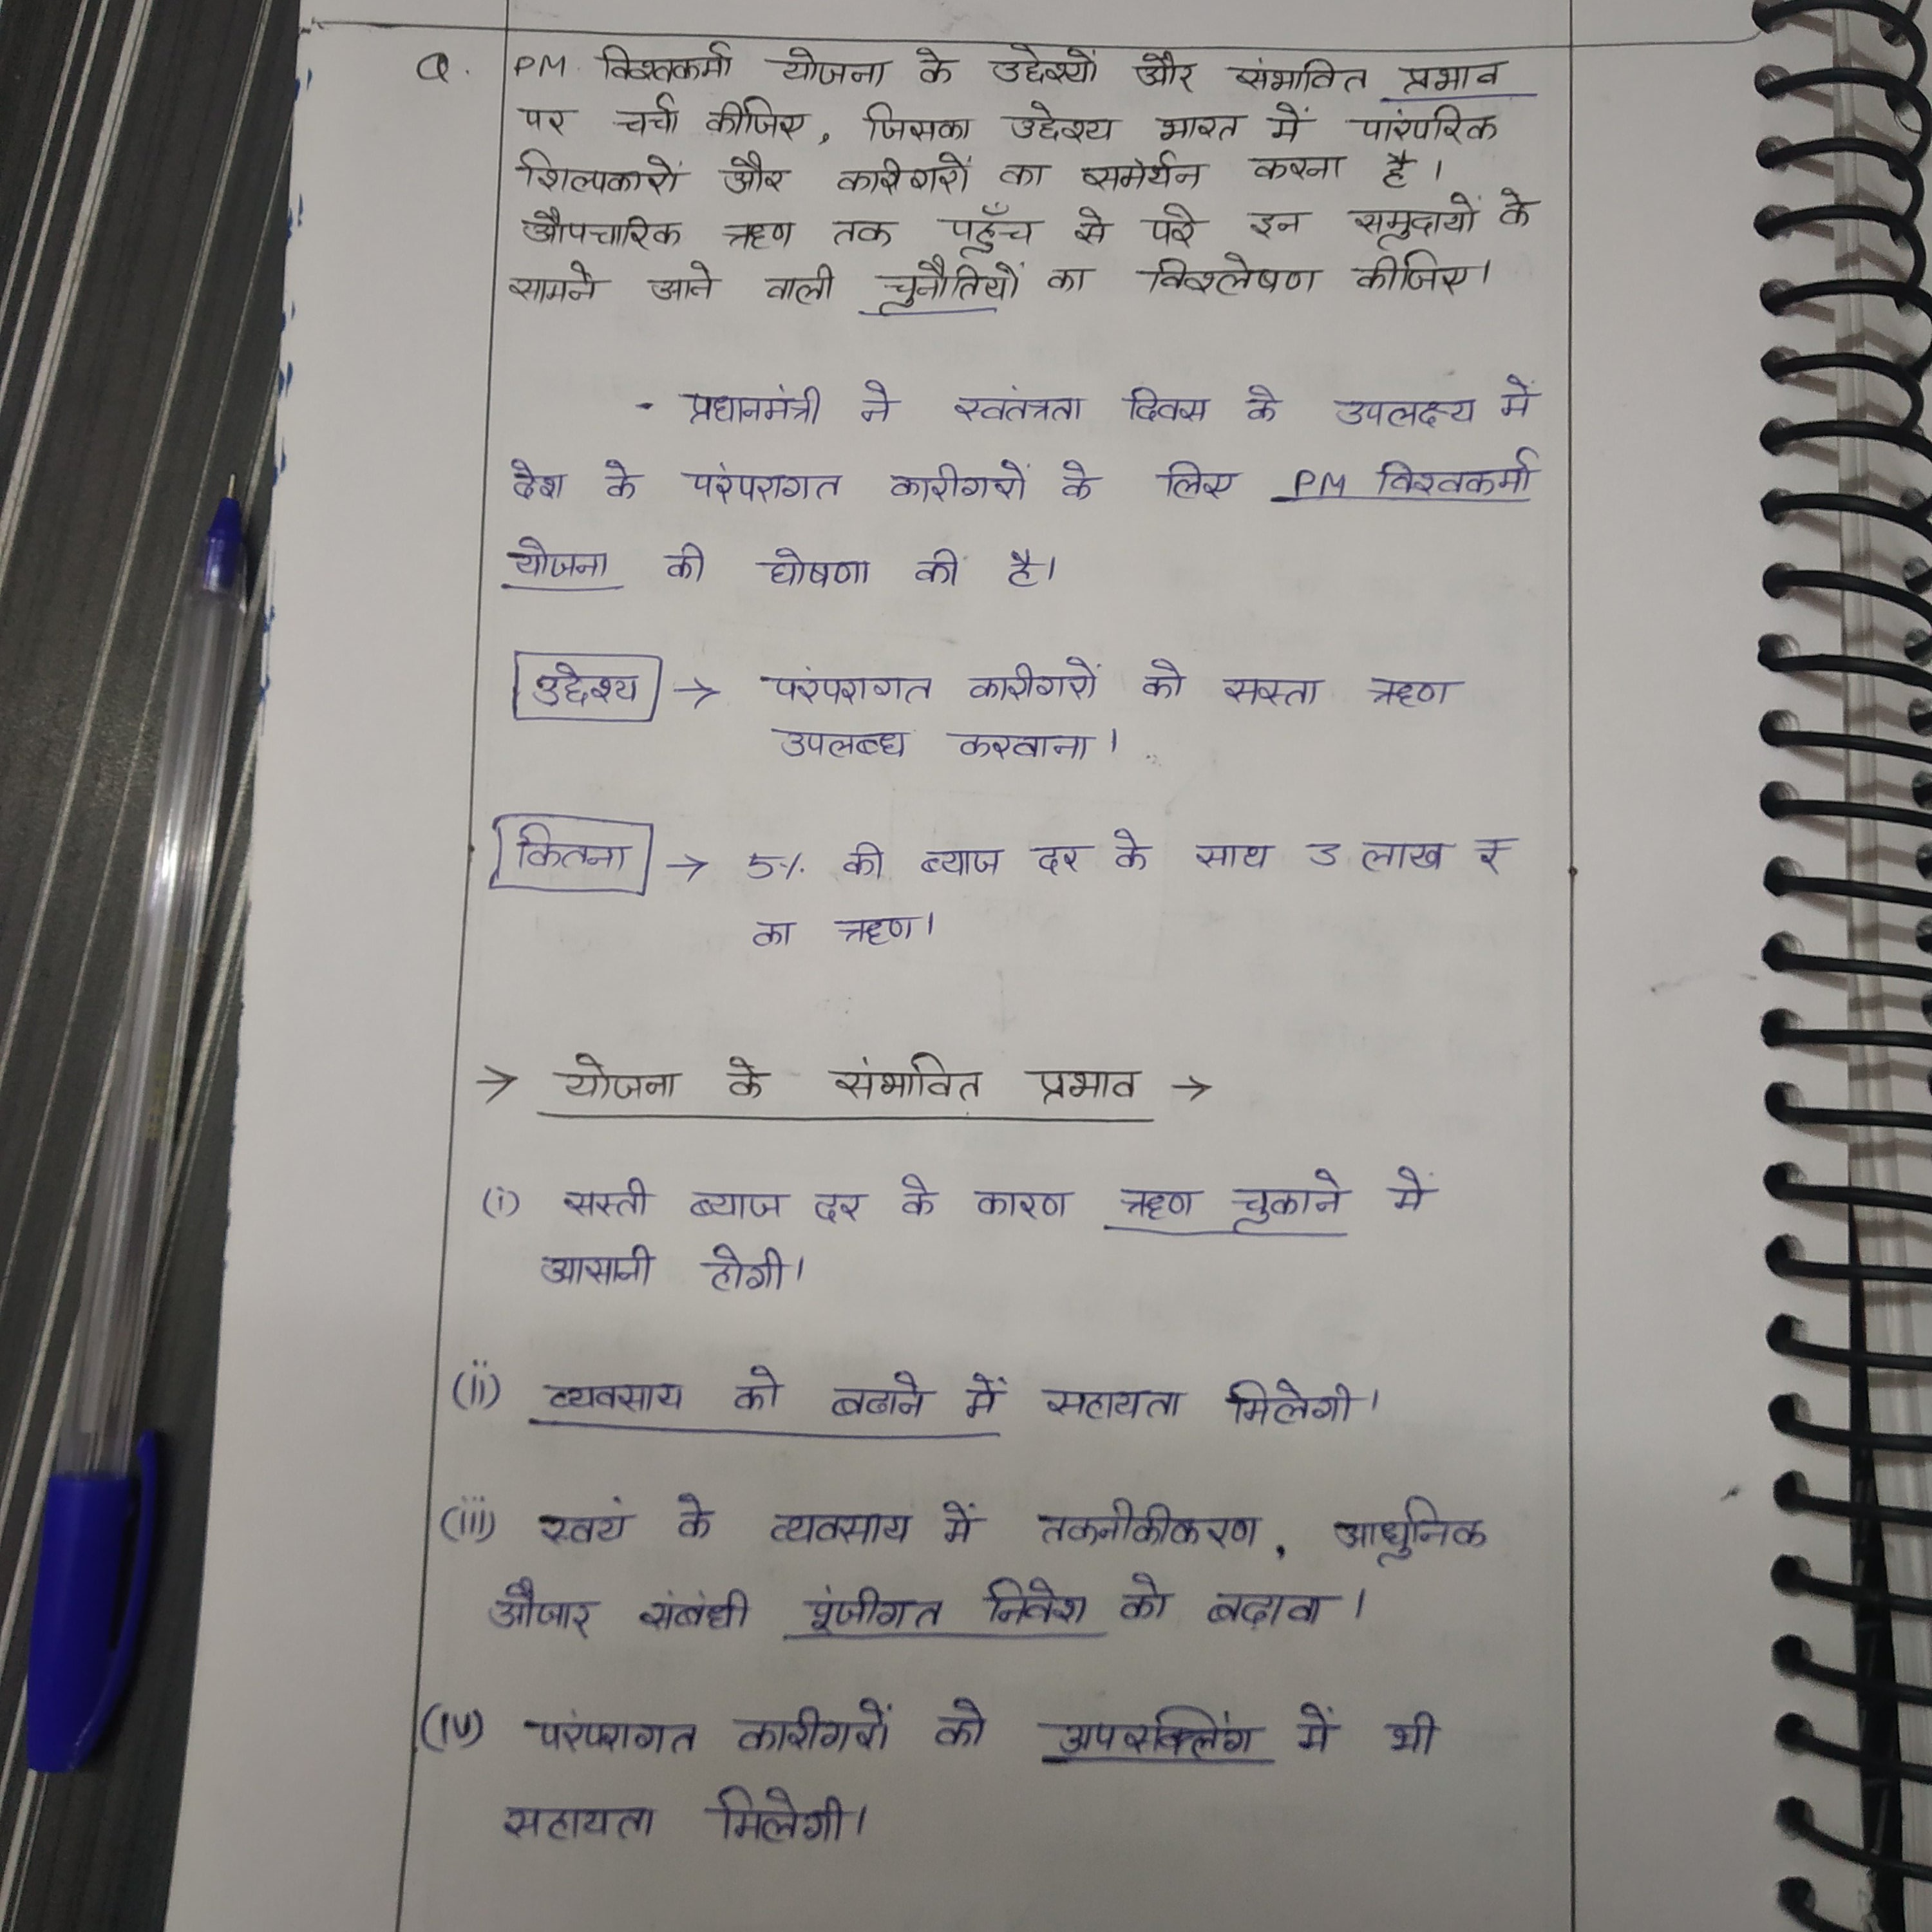 Q. PM विश्वकर्मा योजना के उद्देश्यों और संभावित प्रभाव
पर चर्चा कीजिए, जिसका उद्देश्य भारत में पारंपरिक
शिल्पकारों और कारीगरों का समर्थन करना है।
औपचारिक ऋण तक पहुँच से परे इन समुदायों के
सामने आने वाली चुनौतियों का विश्लेषण कीजिए।
- प्रधानमंत्री ने स्वतंत्रता दिवस के उपलक्ष्य में
देश के परंपरागत कारीगरों के लिए PM विश्वकर्मा
योजना की घोषणा की है।
उद्देश्य → परंपरागत कारीगरों को सस्ता ऋण
उपलब्ध करवाना।
कितना → 5% की ब्याज दर के साथ 3 लाख ₹
का ऋण।
→ योजना के संभावित प्रभाव →
(i) सस्ती ब्याज दर के कारण ऋण चुकाने में
आसानी होगी।
(ii) व्यवसाय को बढाने में सहायता मिलेगी।
(iii) स्वयं के व्यवसाय में तकनीकीकरण, आधुनिक
औजार संबंधी पूंजीगत निवेश को बढ़ावा।
(iv) परंपरागत कारीगरों को अपस्क्लिंग में भी
सहायता मिलेगी।